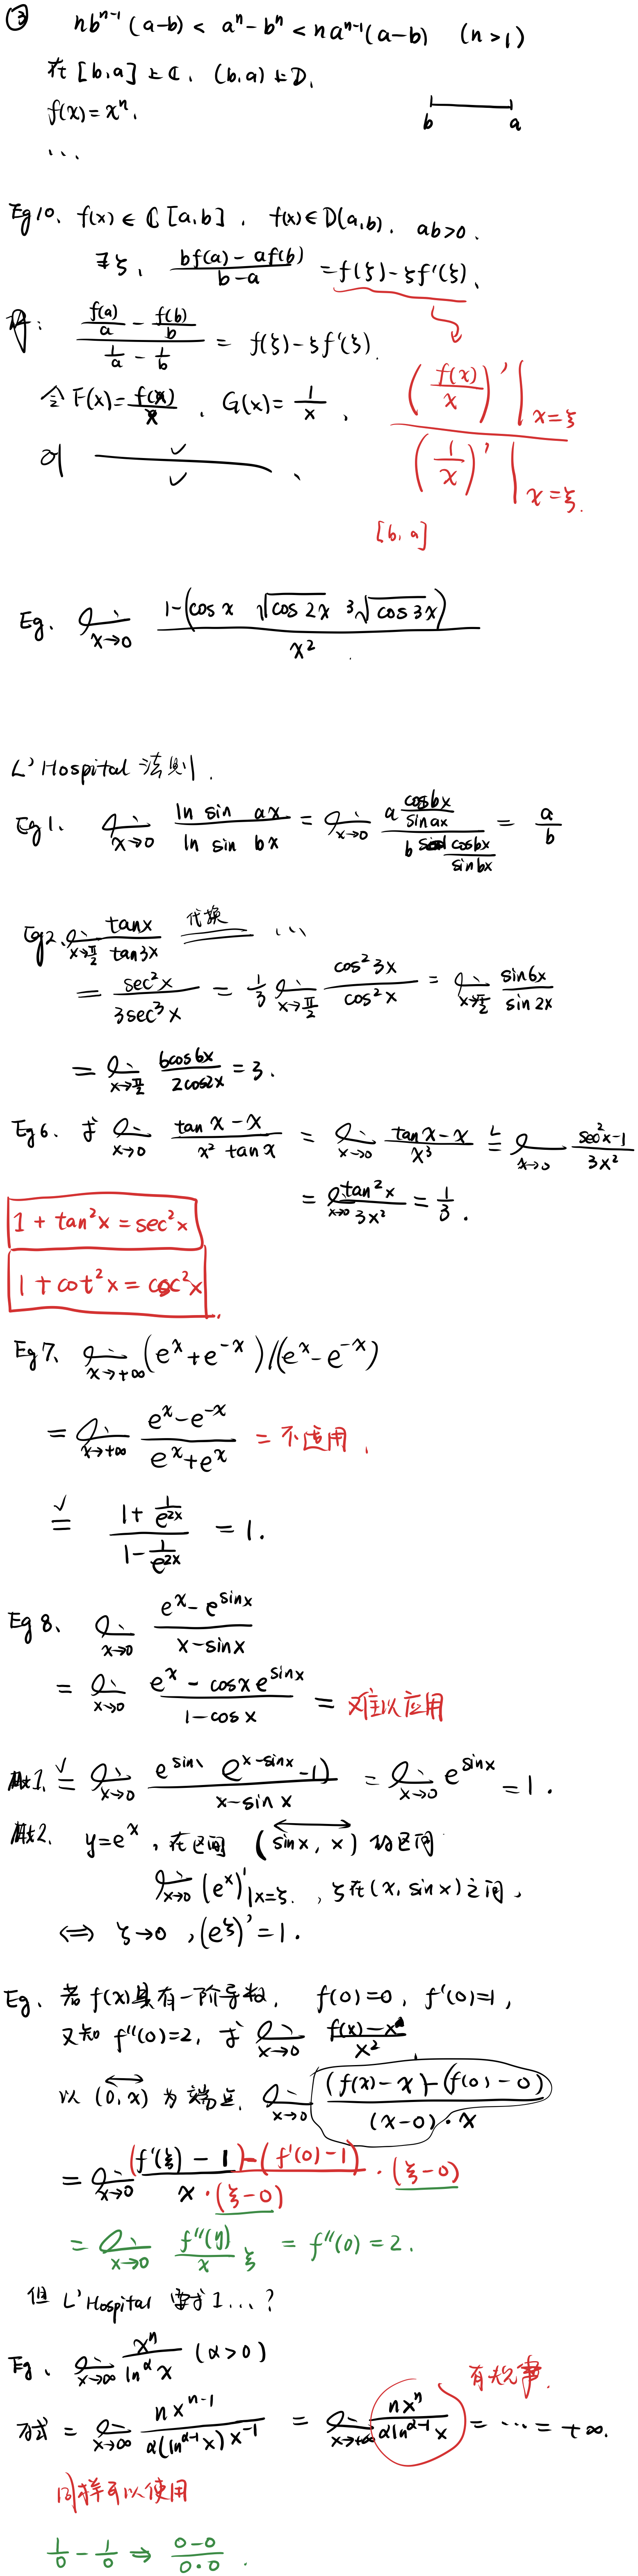 ③ nb^{n-1}(a-b) < a^n - b^n < na^{n-1}(a-b) (n>1)
在 [b,a] 上 C, (b,a) 上 D,
f(x) = x^n,
b a
...
Eg10. f(x) ∈ C[a,b], f(x) ∈ D(a,b), ab>0.
∃ξ, \frac{bf(a) - af(b)}{b-a} = f(ξ) - ξf'(ξ).
\frac{\frac{f(a)}{a} - \frac{f(b)}{b}}{\frac{1}{a} - \frac{1}{b}} = f(ξ) - ξf'(ξ).
令 F(x) = \frac{f(x)}{x}, G(x) = \frac{1}{x},
\frac{(\frac{f(x)}{x})'|_{x=ξ}}{(\frac{1}{x})'|_{x=ξ.}}
则 \frac{✓}{✓}.
[b,a]
Eg. lim_{x→0} \frac{1-(cos x \sqrt{cos 2x} \sqrt[3]{cos 3x})}{x^2}
L'Hospital 法则.
Eg1. lim_{x→0} \frac{ln sin ax}{ln sin bx} = lim_{x→0} \frac{a\frac{cosbx}{sinax}}{b\frac{cosbx}{sinbx}} = \frac{a}{b}
Eg2. lim_{x→\frac{π}{2}} \frac{tanx}{tan3x} 代换 ...
= \frac{sec^2x}{3sec^3x} = \frac{1}{3} lim_{x→\frac{π}{2}} \frac{cos^2 3x}{cos^2 x} = lim_{x→\frac{π}{2}} \frac{sin6x}{sin2x}
= lim_{x→\frac{π}{2}} \frac{6cos6x}{2cos2x} = 3.
Eg6. 求 lim_{x→0} \frac{tan x - x}{x^2 tan x} = lim_{x→0} \frac{tan x - x}{x^3} \overset{L}{=} lim_{x→0} \frac{sec^2x-1}{3x^2}
= lim_{x→0} \frac{tan^2x}{3x^2} = \frac{1}{3}.
1 + tan^2x = sec^2x
1 + cot^2x = csc^2x
Eg7. lim_{x→+∞} (e^x + e^{-x})/(e^x - e^{-x})
= lim_{x→+∞} \frac{e^x - e^{-x}}{e^x + e^x} = 不适用.
\overset{✓}{=} \frac{1 + \frac{1}{e^{2x}}}{1 - \frac{1}{e^{2x}}} = 1.
Eg8. lim_{x→0} \frac{e^x - e^{sinx}}{x - sinx}
= lim_{x→0} \frac{e^x - cosx e^{sinx}}{1 - cosx} = 难以应用
解1. \overset{✓}{=} lim_{x→0} \frac{e^{sinx}(e^{x-sinx}-1)}{x - sin x} = lim_{x→0} e^{sinx} = 1.
解2. y=e^x, 在区间 (sinx, x) 的区间
lim_{x→0} (e^x)'|_{x=ξ}., ξ在(x, sinx)之间,
⟺ ξ→0, (e^ξ)' = 1.
Eg. 若 f(x)具有一阶导数, f(0)=0, f'(0)=1,
又知 f''(0)=2, 求 lim_{x→0} \frac{f(x)-x}{x^2}
以 (0,x) 为端点. lim_{x→0} \frac{(f(x)-x)-(f(0)-0)}{(x-0)·x}
= lim_{x→0} \frac{(f'(ξ)-1)-(f'(0)-1)}{x·(ξ-0)} · (ξ-0)
= lim_{x→0} \frac{f''(y)}{x} ξ = f''(0) = 2.
但 L'Hospital 要求1...?
Eg. lim_{x→∞} \frac{x^n}{ln^α x} (α>0)
有规律.
原式 = lim_{x→∞} \frac{nx^{n-1}}{α(ln^{α-1}x)x^{-1}} = lim_{x→+∞} \frac{nx^n}{αln^{α-1}x} = ... = +∞.
同样可以使用
\frac{1}{0} - \frac{1}{0} ⇒ \frac{0-0}{0·0}.